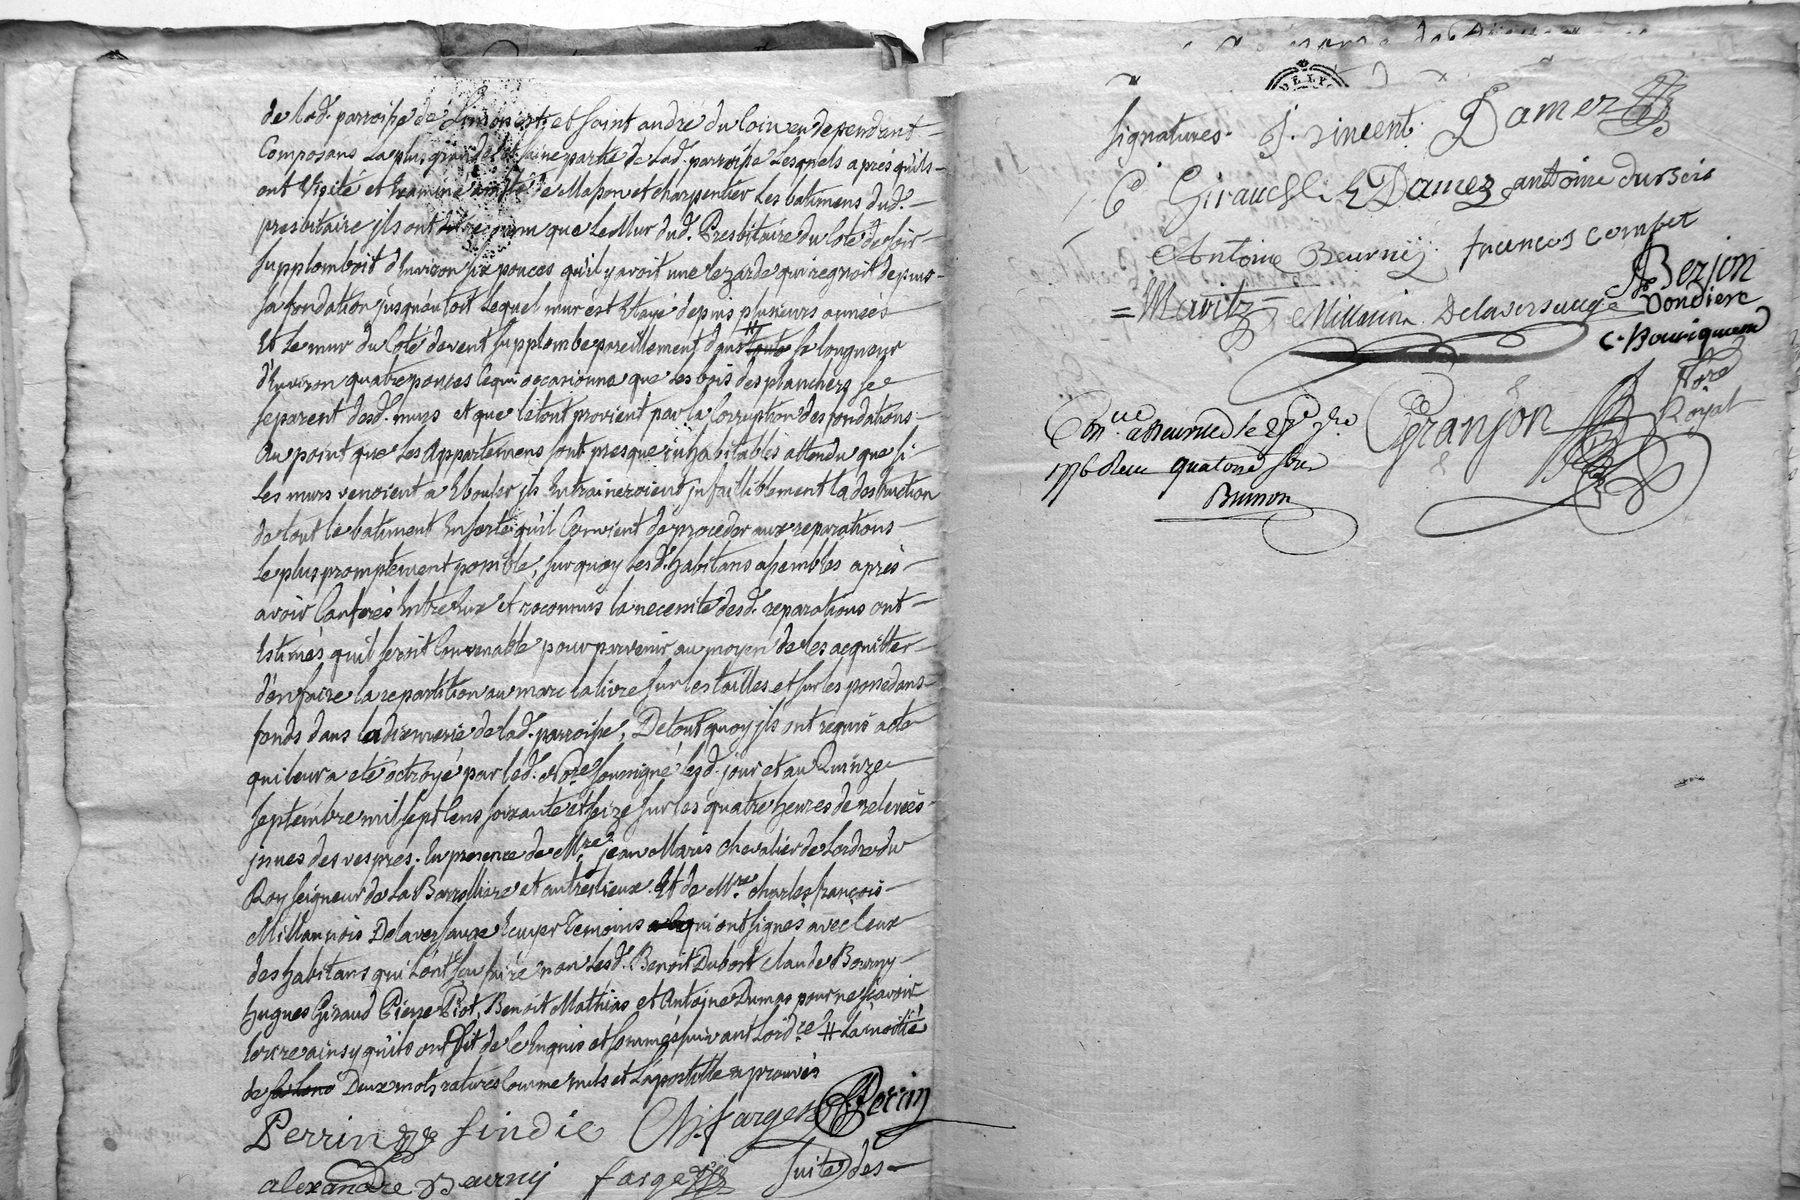 de lad. parroisse de Limonest et saint andré du coin en dependant
Composans la plus grande et saine partie de lad. parroisse lesquels apres qu'ils
ont Visité et Examiné de Masson et charpentier les batimens dud.
presbitaire ils ont reconnu que le Mur dud. Presbitaire du coté de bir
supplomboit d'Environ six pouces qu'il y avoit une lezarde qui regnoit depuis
la fondation jusqu'au toit lequel mur est Etayé depuis plusieurs années
Et le mur du coté devent supplombe pareillement dans toute sa longueur
d'Environ quatre pouces ce qui occasionne que les bois des planchers se
separent desd. murs et que le tout provient par la corruption des fondations
Au point que les Appartemens sont presque inhabitables attendu que si
les murs venoient a Ebouler ils Entraineroient infailliblement la destruction
de tout le batiment Ensorte qu'il Convient de proceder aux reparations
le plus promptement possible, surquoy lesd. habitans assemblés après
avoir Conferés Entre Eux et reconnus la necessité desd. reparations ont
Estimés qu'il seroit Convenable pour parvenir au moyen de les acquitter
d'en faire la repartition au marc la livre sur les tailles et sur les possedans
fonds dans la dixmerie de lad. parroisse, De tout quoy ils ont requis acte
qui leur a eté octroyé par led. Nore soussigné lesd. jour et an Quinze
septembre mil sept cens soixante et seize sur les quatre heures de relevées
issues des vespres. En presence de Mre jean Maris chevalier de Lordre du
Roy seigneur de la Barolliere et autres lieux. Et de Mre charles françois
Millannois Delaversauxe Ecuyer Temoins qui ont signés avec Ceux
des habitans qui L'ont sçu faire non lesd. Benoit Dubost Claude Bourny
hugues Giraud Pierre Piot, Benoit Mathias et Antoine Dumas pour ne sçavoir
Ecrire ainsy qu'ils ont Dit de ce Enquis et sommés suivant Lordce # La moitié
de Deux mots raturés comme nuls et Lapostille aprouvés
Perrin sindic Ch. farges Perrin
alexandre Beurnij farge suite des
signatures. J. vincent Damez
C Giraud Damez antoine dubois
Antoine Beurnij francois compet
= Mavitz = Millanois Delaversauxe Berjon
Vondiere
C. Bouriquand
Granjon Nore Royal
Conlle a Beurnied le
1776 Recu quatorze sous
Brunon